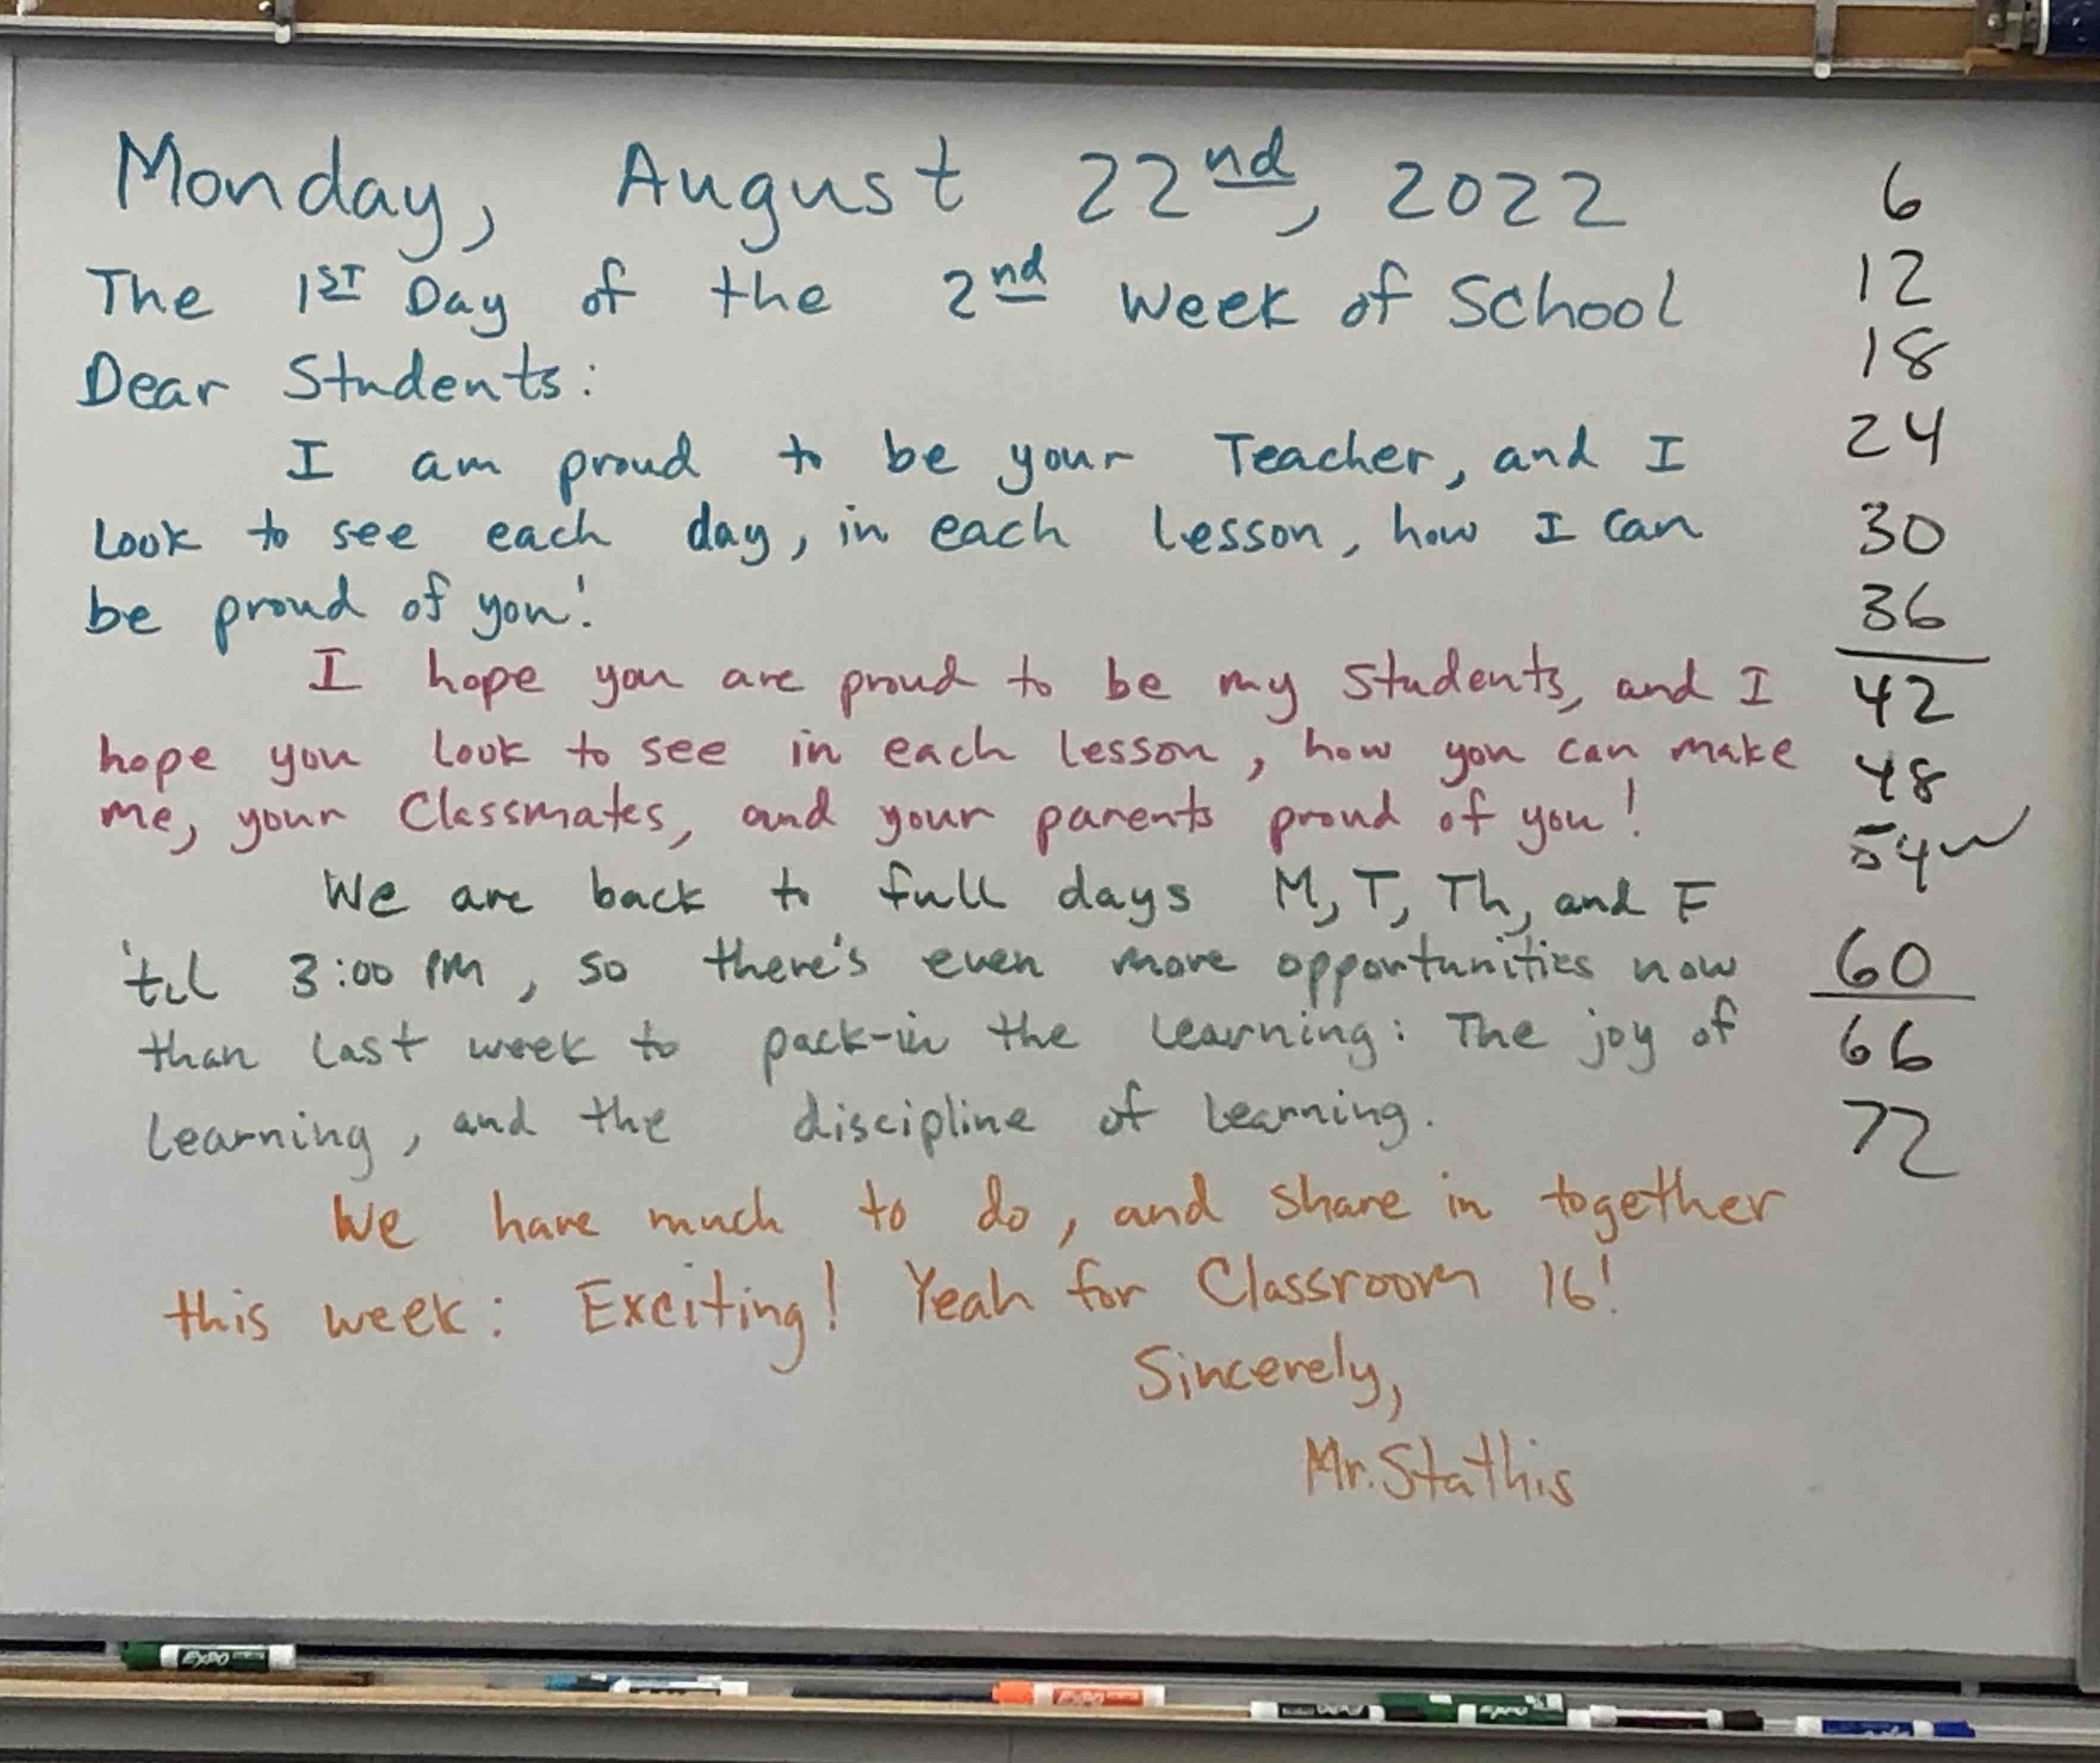 Monday, August 22nd, 2022
The 1ST Day of the 2nd Week of School
Dear Students:
I am proud to be your Teacher, and I
Look to see each day, in each lesson, how I can
be proud of you!
I hope you are proud to be my students, and I
hope you look to see in each lesson, how you can make
me, your Classmates, and your parents proud of you!
We are back to full days M, T, Th, and F
'til 3:00 PM, so there's even more opportunities now
than last week to pack-in the learning: The joy of
learning, and the discipline of learning.
We have much to do, and share in together
this week: Exciting! Yeah for Classroom 16!
Sincerely,
Mr. Stathis
6
12
18
24
30
36
42
48
54
60
66
72
EXPO
EXPO
EXPO